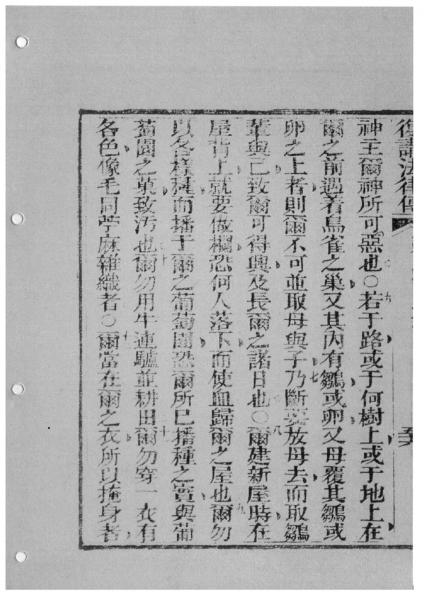 復講法律傳
神主爾神所可惡也○若于路或于何樹上或于地上在
爾之前遇着鳥雀之巢又其內有鶵或卵又母覆其鶵或
卵之上者則爾不可並取母與子乃斷要放母去而取鶵
葉與已致爾可得與及長爾之諸日也○爾建新屋時在
屋背上就要做欄恐何人落下而使血歸爾之屋也爾勿
以各樣種而播于爾之葡萄園恐爾所已播種之實與葡
萄園之菓致污也爾勿用牛連驢並耕田爾勿穿一衣有
各色像毛同苧麻雜織者○爾當在爾之衣所以掩身者